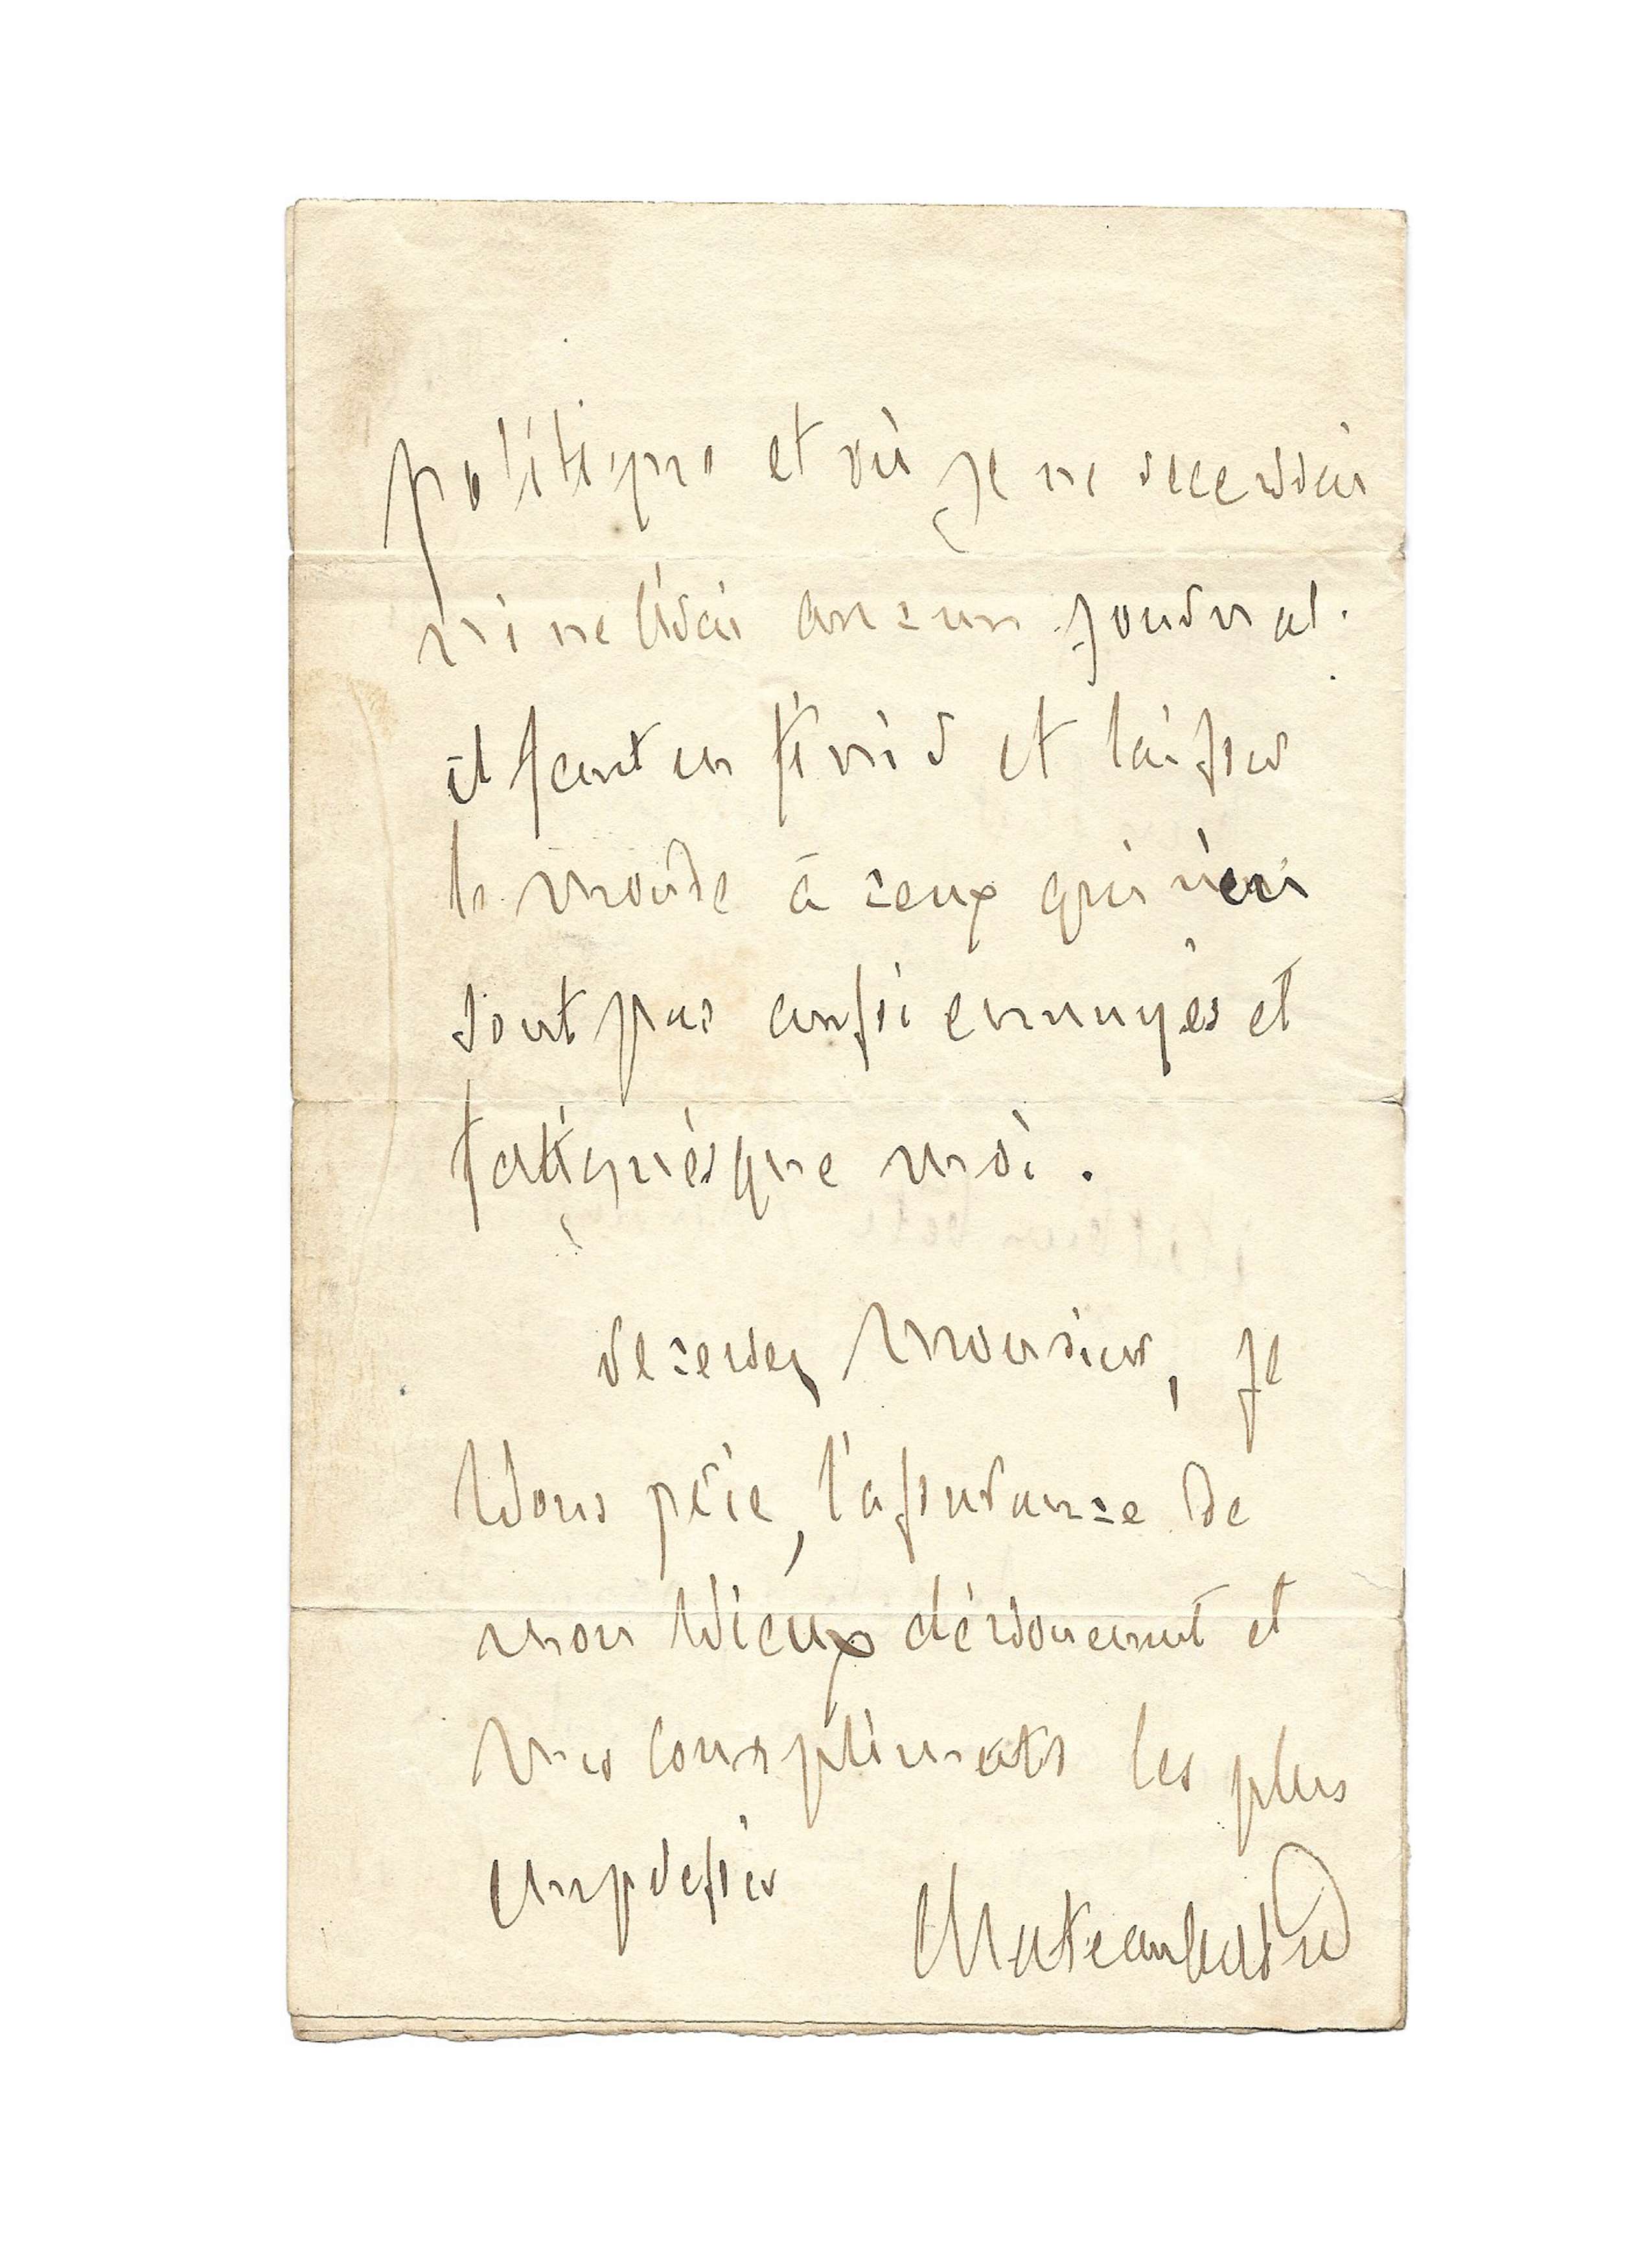 politique et où je ne recevrai
ni ne lirai aucun journal.
il faut en finir et laisser
le monde à ceux qui n'en
sont pas aussi ennuyés et
fatigués que moi.
recevez, Monsieur, je
vous prie, l'assurance de
mon vieux dévouement et
mes compliments les plus
empressés
Chateaubriand